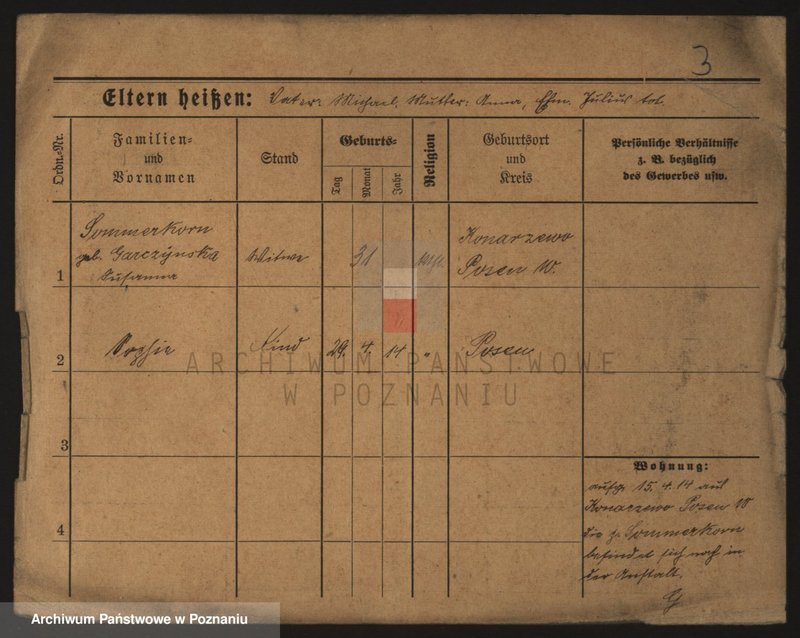 3
Eltern heißen: Vater: Michael, Mutter: Anna, Ehm. Julius tot.
Ordn.-Nr.
Familien- und Vornamen
Stand
Geburts-
Tag
Monat
Jahr
Religion
Geburtsort und Kreis
Persönliche Verhältnisse z. B. bezüglich des Gewerbes usw.
1
Sommerkorn
geb. Garczynska
Susanna
Witwe
31
Konarzewo
Posen W.
2
Sophie
Kind
29. 4. 14
"
Posen
3
4
Wohnung:
15. 4. 14 aus
Konarzewo Posen W
die p. Sommerkorn
befindet sich noch in
der Anstalt.
ARCHIWUM PAŃSTWOWE
W POZNANIU
Archiwum Państwowe w Poznaniu